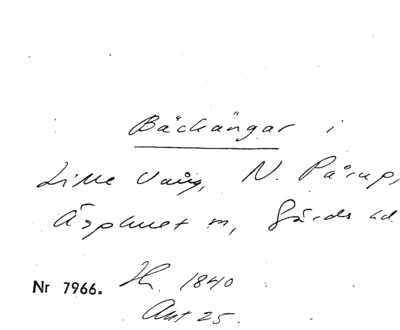 Bäckängar i
Lille Vång, N. Pårup,
Äsphult m, Gärds hd.
Nr 7966. 1840
Akt 25.